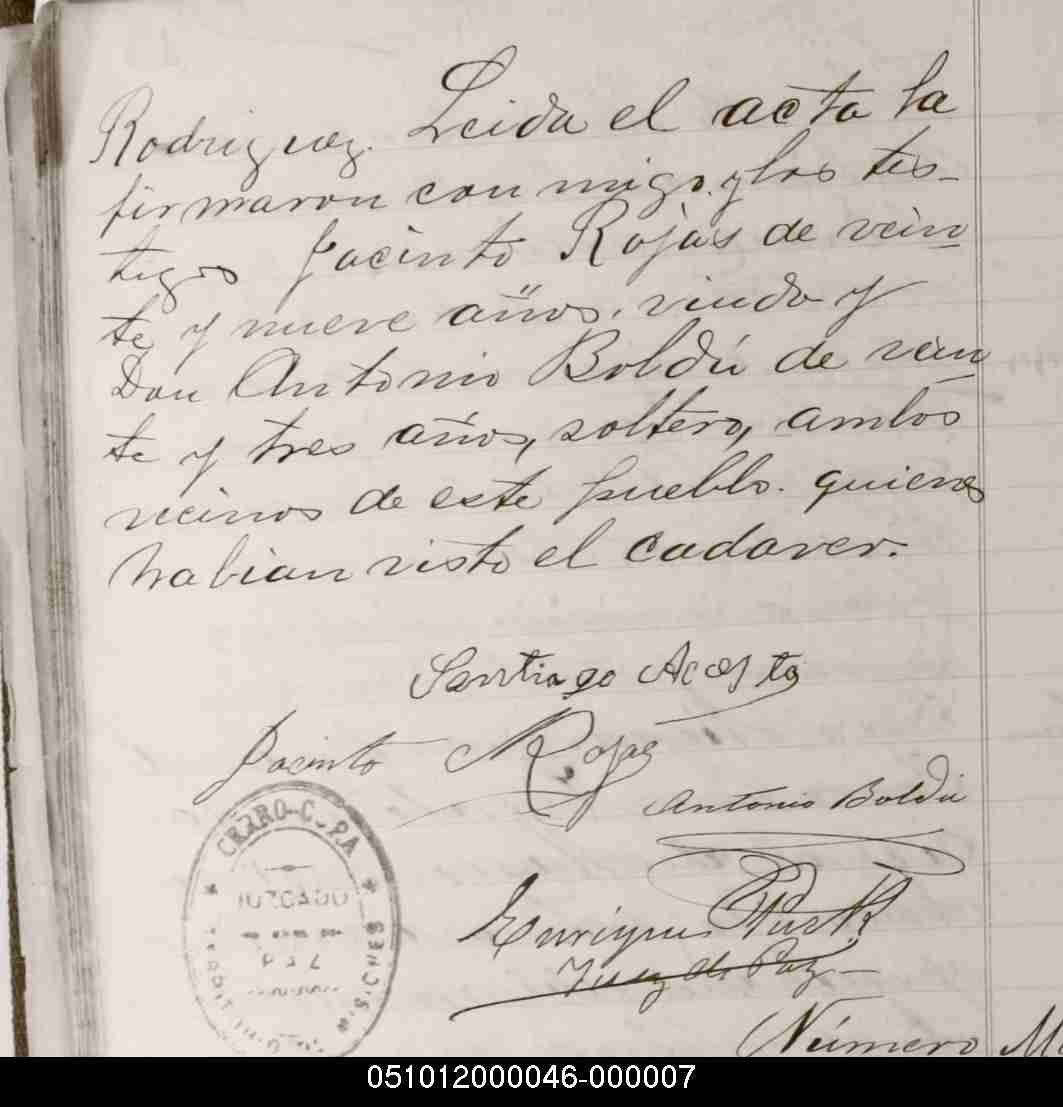 Rodriguez. Leida el acta la
firmaron con migo. y los tes-
tigos Jacinto Rojas de vein
te y nueve años. viudo y
Don Antonio Boldú de vein
te y tres años, soltero, ambos
vecinos de este pueblo. quienes
habian visto el cadaver.
Santiago Acosta
Jacinto Rojas
Antonio Boldú
CERRO-C
JUZGADO
DE
PAZ
MISIONES
Enrique
Juez de Paz
Número
051012000046-000007